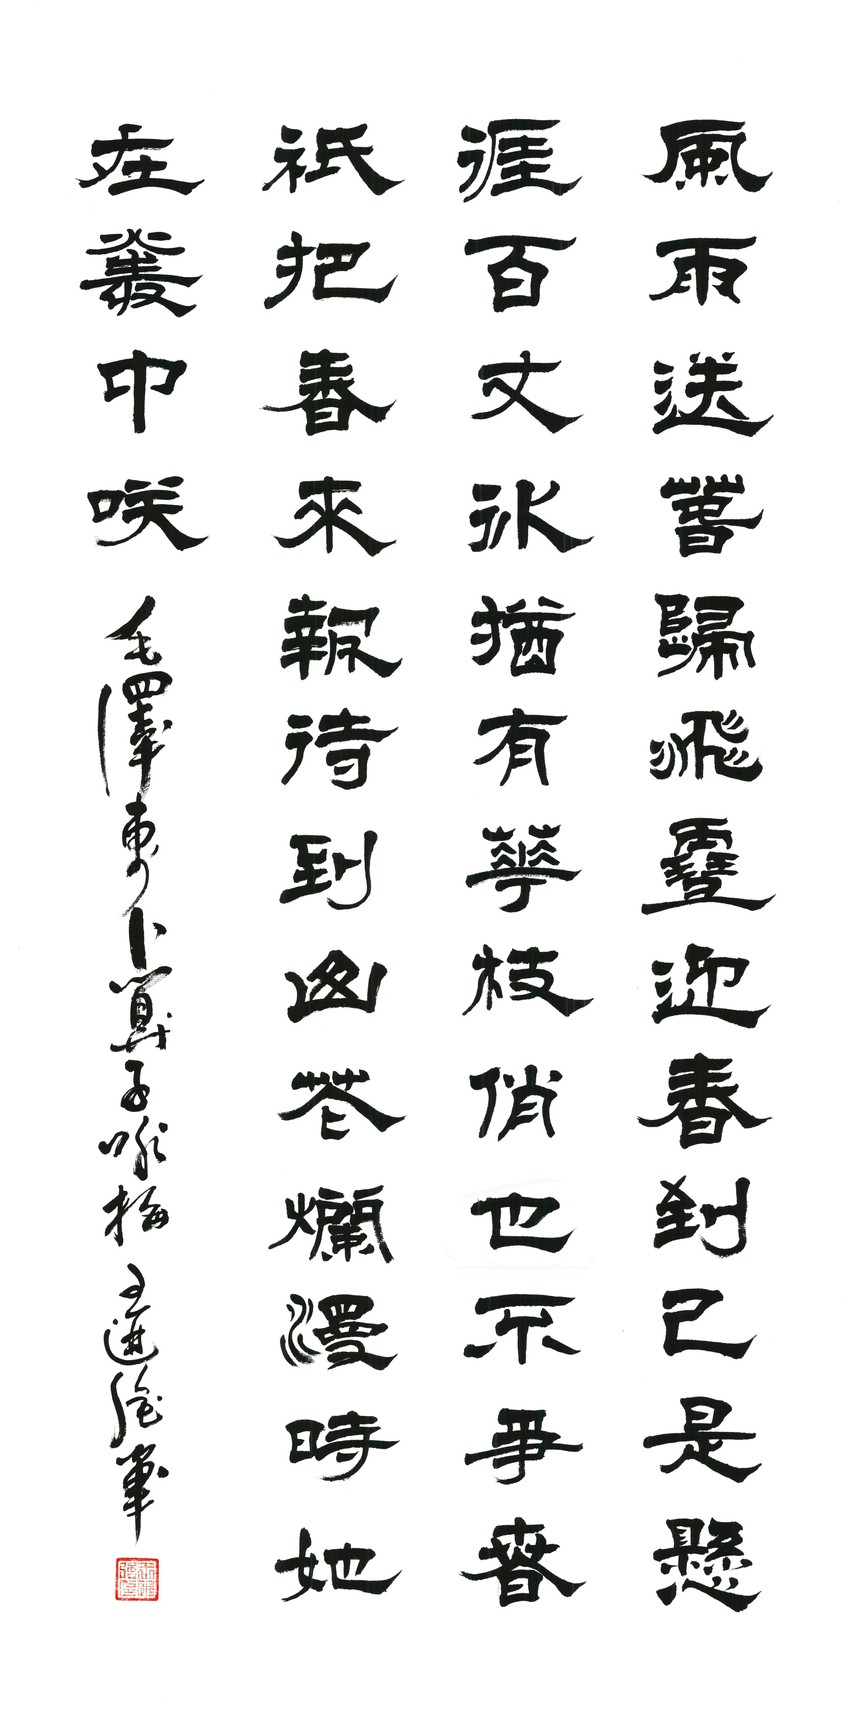 風雨送萅歸飛雪迎春到已是懸
涯百丈冰猶有華枝俏也不爭春
祇把春來報待到山花爛漫時她
在叢中咲 毛澤東卜算子咏梅 王 筆